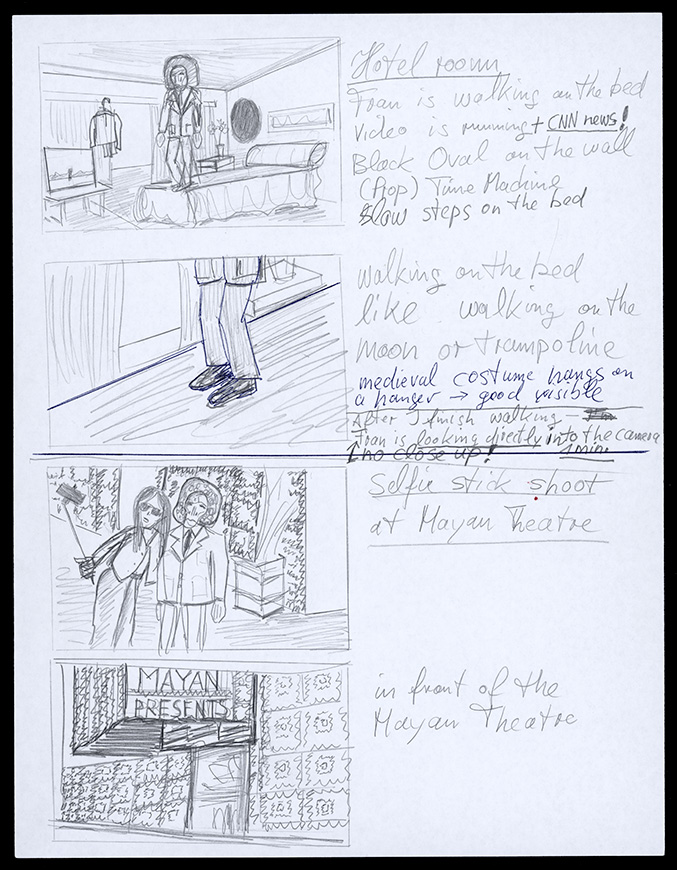 Hotel room
Fran is walking on the bed
Video is running + CNN news!
Black Oval on the wall
(Prop) Time Machine
Slow steps on the bed
walking on the bed
like walking on the
moon or trampoline
medieval costume hangs on
a hanger → good visible
After I finish walking —
Fran is looking directly into the camera
no close up! 1 min.
Selfie stick shoot
at Mayan Theatre
MAYAN
PRESENTS
in front of the
Mayan Theatre